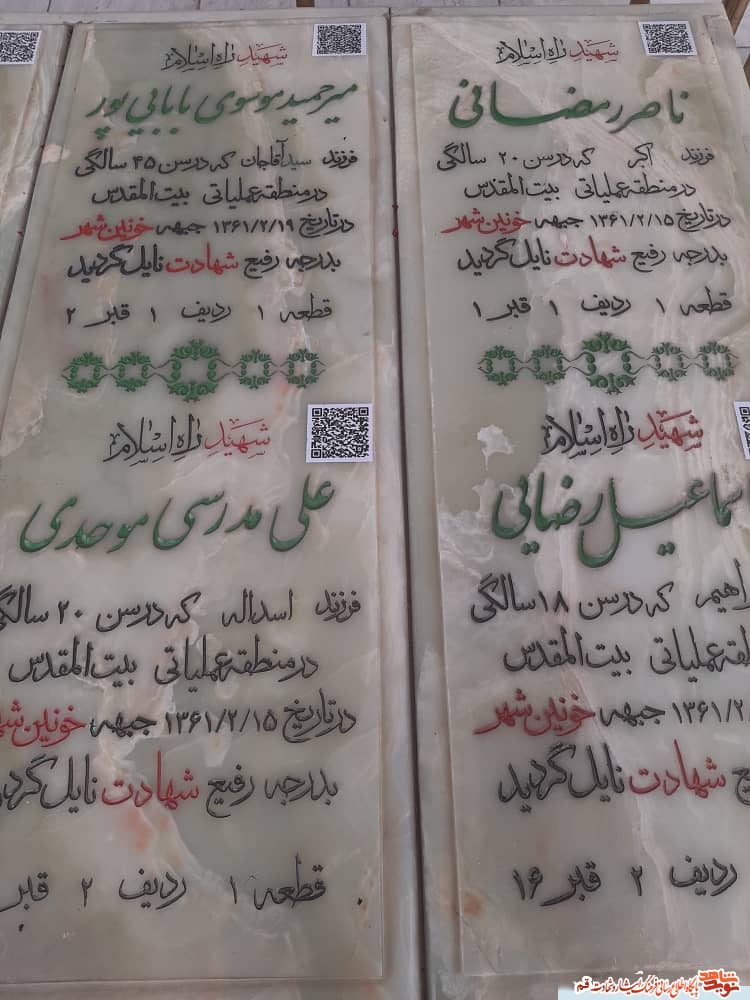 شهید راه اسلام
ناصر رمضانی
فرزند اکبر که در سن ۲۰ سالگی
در منطقه عملیاتی بیت المقدس
در تاریخ ۱۳۶۱/۲/۱۵ جبهه خونین شهر
بدرجه رفیع شهادت نایل گردید
قطعه ۱ ردیف ۱ قبر ۱
شهید راه اسلام
سماعیل رضایی
اهیم که در سن ۱۸ سالگی
عملیاتی بیت المقدس
۱۳۶۱/۲ جبهه خونین شهر
شهادت نایل گردید
ردیف ۲ قبر ۱۶
شهید راه اسلام
میرحمید موسوی بابایی پور
فرزند سیدآقاجان که در سن ۴۵ سالگی
در منطقه عملیاتی بیت المقدس
در تاریخ ۱۳۶۱/۲/۱۹ جبهه خونین شهر
بدرجه رفیع شهادت نایل گردید
قطعه ۱ ردیف ۱ قبر ۲
شهید راه اسلام
علی مدرسی موحدی
فرزند اسداله که در سن ۲۰ سالگی
در منطقه عملیاتی بیت المقدس
در تاریخ ۱۳۶۱/۲/۱۵ جبهه خونین شه
بدرجه رفیع شهادت نایل گردید
قطعه ۱ ردیف ۲ قبر
نوید شاهد پایگاه اطلاع رسانی فرهنگ ایثار و شهادت قم